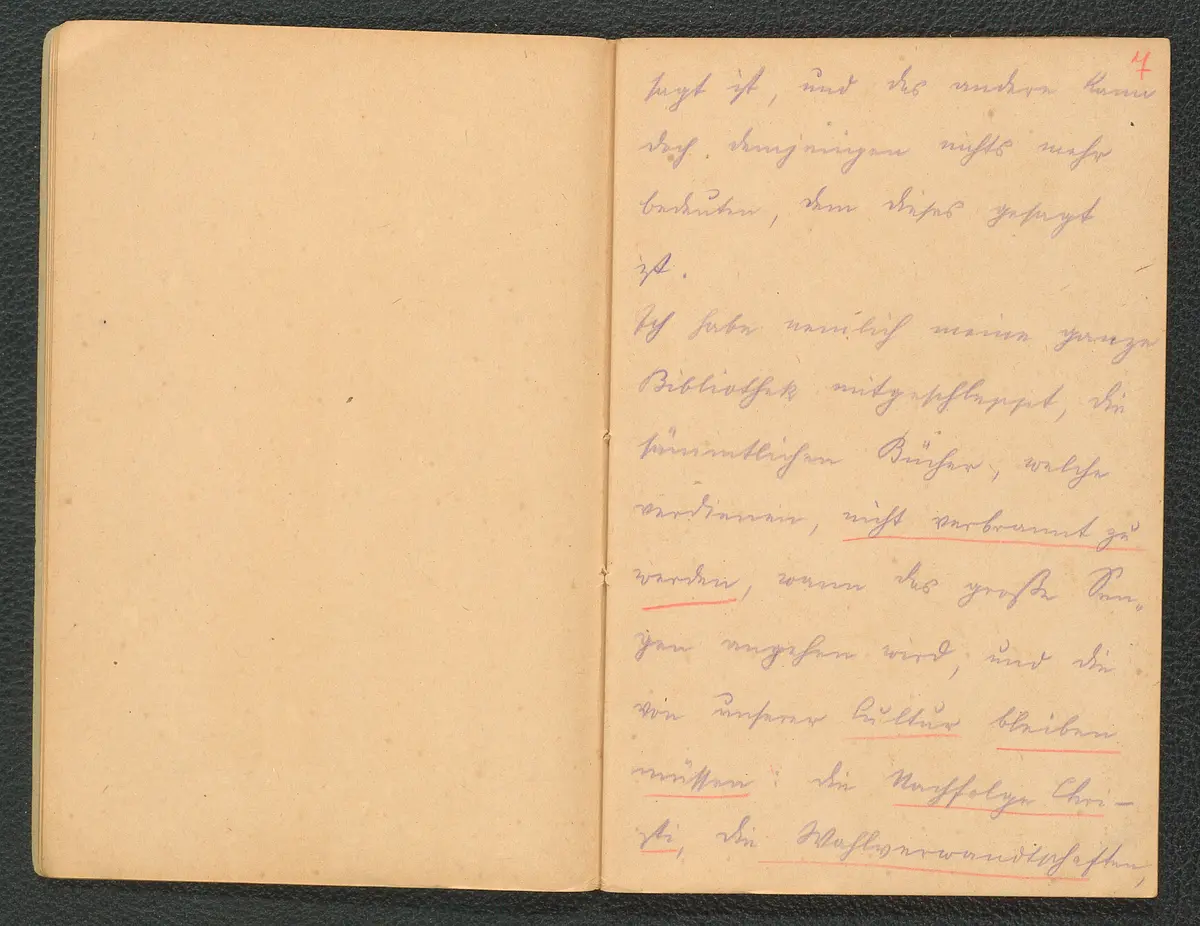 7
sagt ist, und das andere kann
doch demjenigen nichts mehr
bedeuten, dem dieses gesagt
ist.
Ich habe neulich meine ganze
Bibliothek mitgeschleppt, die
sämmtlichen Bücher, welche
verdienen, nicht verbrannt zu
werden, wann das große Sen-
gen angehen wird, und die
von unserer Cultur bleiben
müssen: die Nachfolge Chri-
sti, die Wahlverwandtschaften,